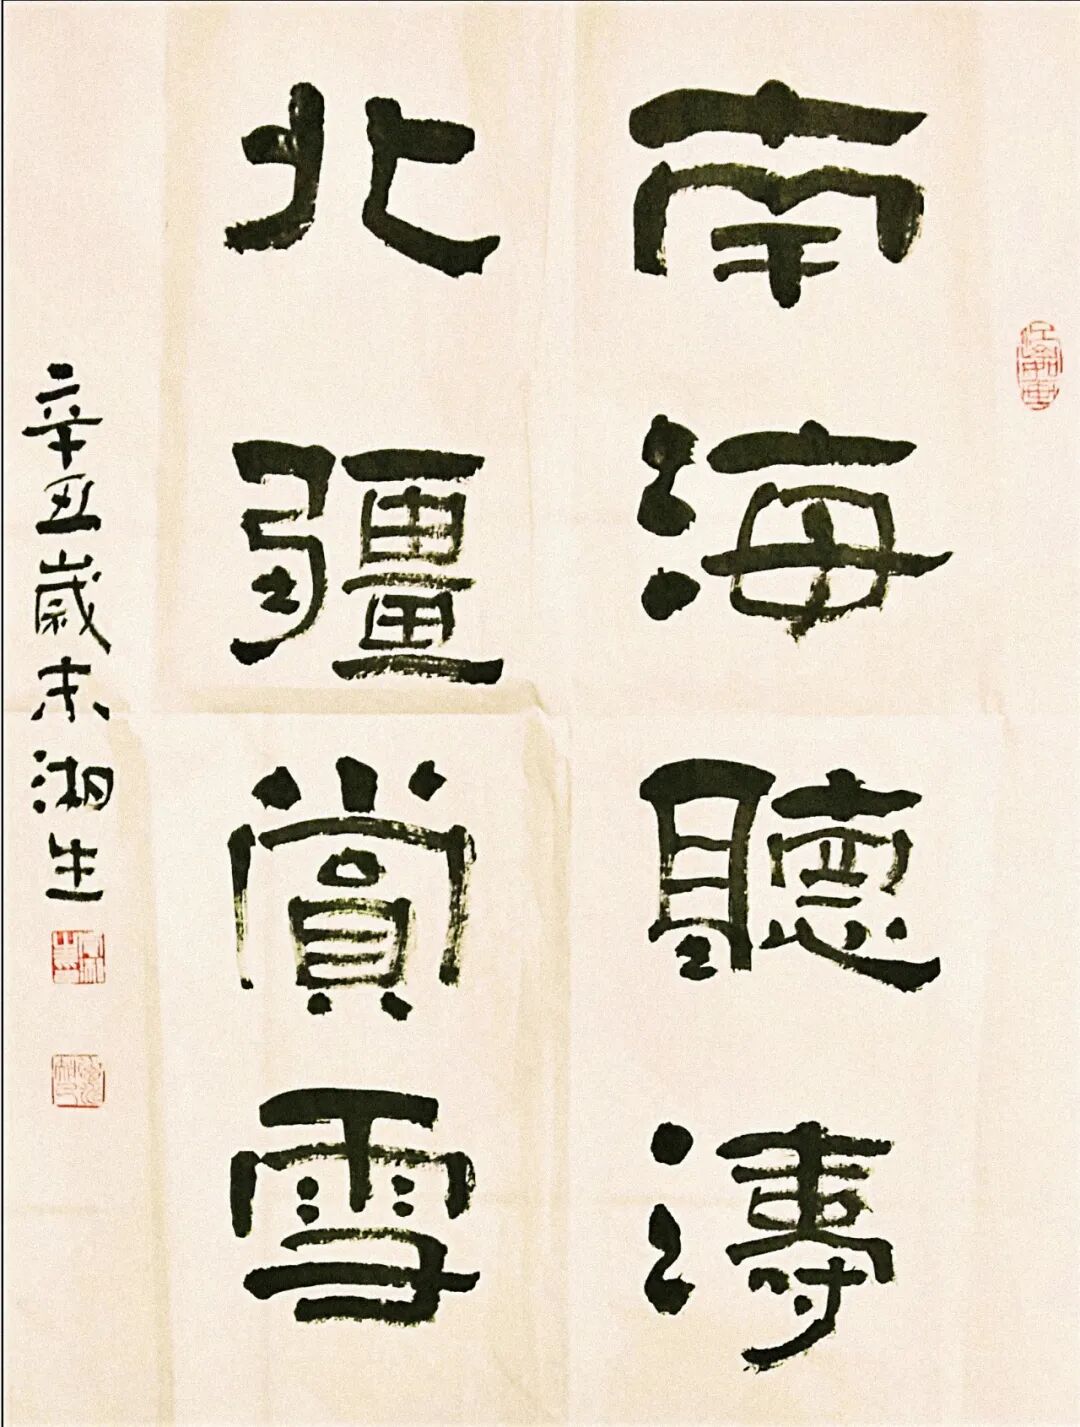 南海聽濤
北疆賞雪
辛丑歲末湘生